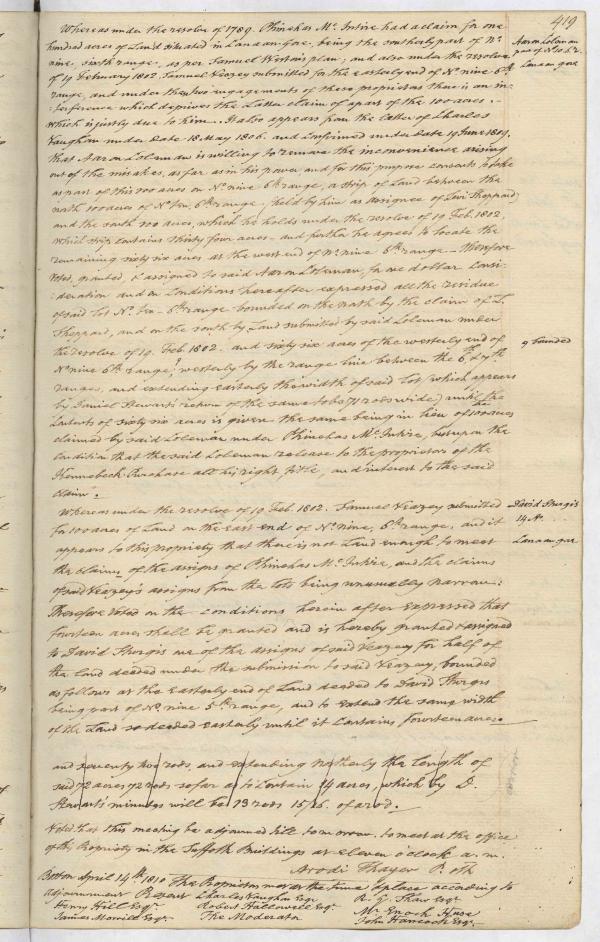 419
Whereas under the resolve of 1789. Phinehas Mc. Intire had a claim for one
hundred acres of Land situated in Canaan-Gore, being the southerly part of No.
nine, sixth range, as per Samuel Weston's plan; and also under the resolve
of 19 February 1802. Samuel Veazey submitted for the easterly end of No. nine 6th.
range, and under these two engagements of these proprietors there is an in-
:terference which deprives the Latter claim of a part of the 100 acres.
which is justly due to him. It also appears from the Letter of Charles
Vaughan under date 18 May 1806. and confirmed under date 19 June 1809.
that Aaron Coleman is willing to remove the inconvenience arising
out of the mistakes, as far as in his power and for this purpose consents to take
as part of this 100 acres on No. nine 6th range, a strip of Land between the
north 100 acres of No. ten, 6th. range, held by him as assignee of Levi Sheppard
and the south 100 acres, which he holds under the resolve of 19 Feb. 1802.
which strip contains thirty four acres - and further he agrees to locate the
remaining sixty six acres at the west end of No. nine 6th range - Therefore
Voted, granted, & assigned to said Aaron Coleman, for one dollar Consi-
:deration and on Conditions hereafter expressed all the residue
of said lot No. ten - 6th range bounded on the north by the claim of L.
Sheppard, and on the south by Land submitted by said Coleman under
the resolve of 19. Feb. 1802. and sixty six acres of the westerly end of
No. nine 6th range; westerly by the range line between the 6th & 7th
ranges, and extending easterly the width of said lot (which appears
by Daniel Stewart's return of the same to be 71 rods wide) until the
Contents of sixty six acres is given the same being in lieu of the 100 acres
claimed by said Coleman under Phinehas Mc. Intire, but upon the
condition that the said Coleman release to the proprietors of the
Kennebeck Purchase all his right, title, and interest to the said
claim.
Aaron Coleman
part of No. 10 6. R.
Canaan gore
q bounded
Whereas under the resolve of 19 Feb. 1802. Samuel Veazey submitted
for 100 acres of Land on the east end of No. nine, 6th. range, and it
appears to this propriety that there is not Land enough to meet
the claims of the assigns of Phinehas Mc. Intire, and the claims
of said Veazey's assigns from the lots being unusually narrow:
Therefore Voted on the conditions herein after expressed that
fourteen acres shall be granted and is hereby granted & assigned
to David Sturgis one of the assigns of said Veazey for half of
the land deeded under the submission to said Veazey, bounded
as follows at the Easterly end of Land deeded to David Sturgis
being part of No. nine 5th range, and to extend the same width
of the Land so deeded easterly until it Contains fourteen acres.
David Sturgis
14 A.
Canaan gore
and seventy two rods, and extending northerly the length of
said 72 acres 72 rods so far as to Contain 14 acres, which by D.
Stewart's minutes will be 13 rods 15/16. of a rod.
Voted that this meeting be adjourned till tomorrow. to meet at the office
of this Propriety in the Suffolk Buildings at eleven o'clock a.m.
Arodi Thayer P. Clk
Boston April 14th. 1810 The Proprietors met at the time & place according to
adjournment Present Charles Vaughan Esqr. R. G. Shaw Esqr.
Henry Hill Esqr. Robert Hallowell Esqr. Mr. Enoch Huse
James Morrill Esqr. The Moderator John Hancock Esqr.